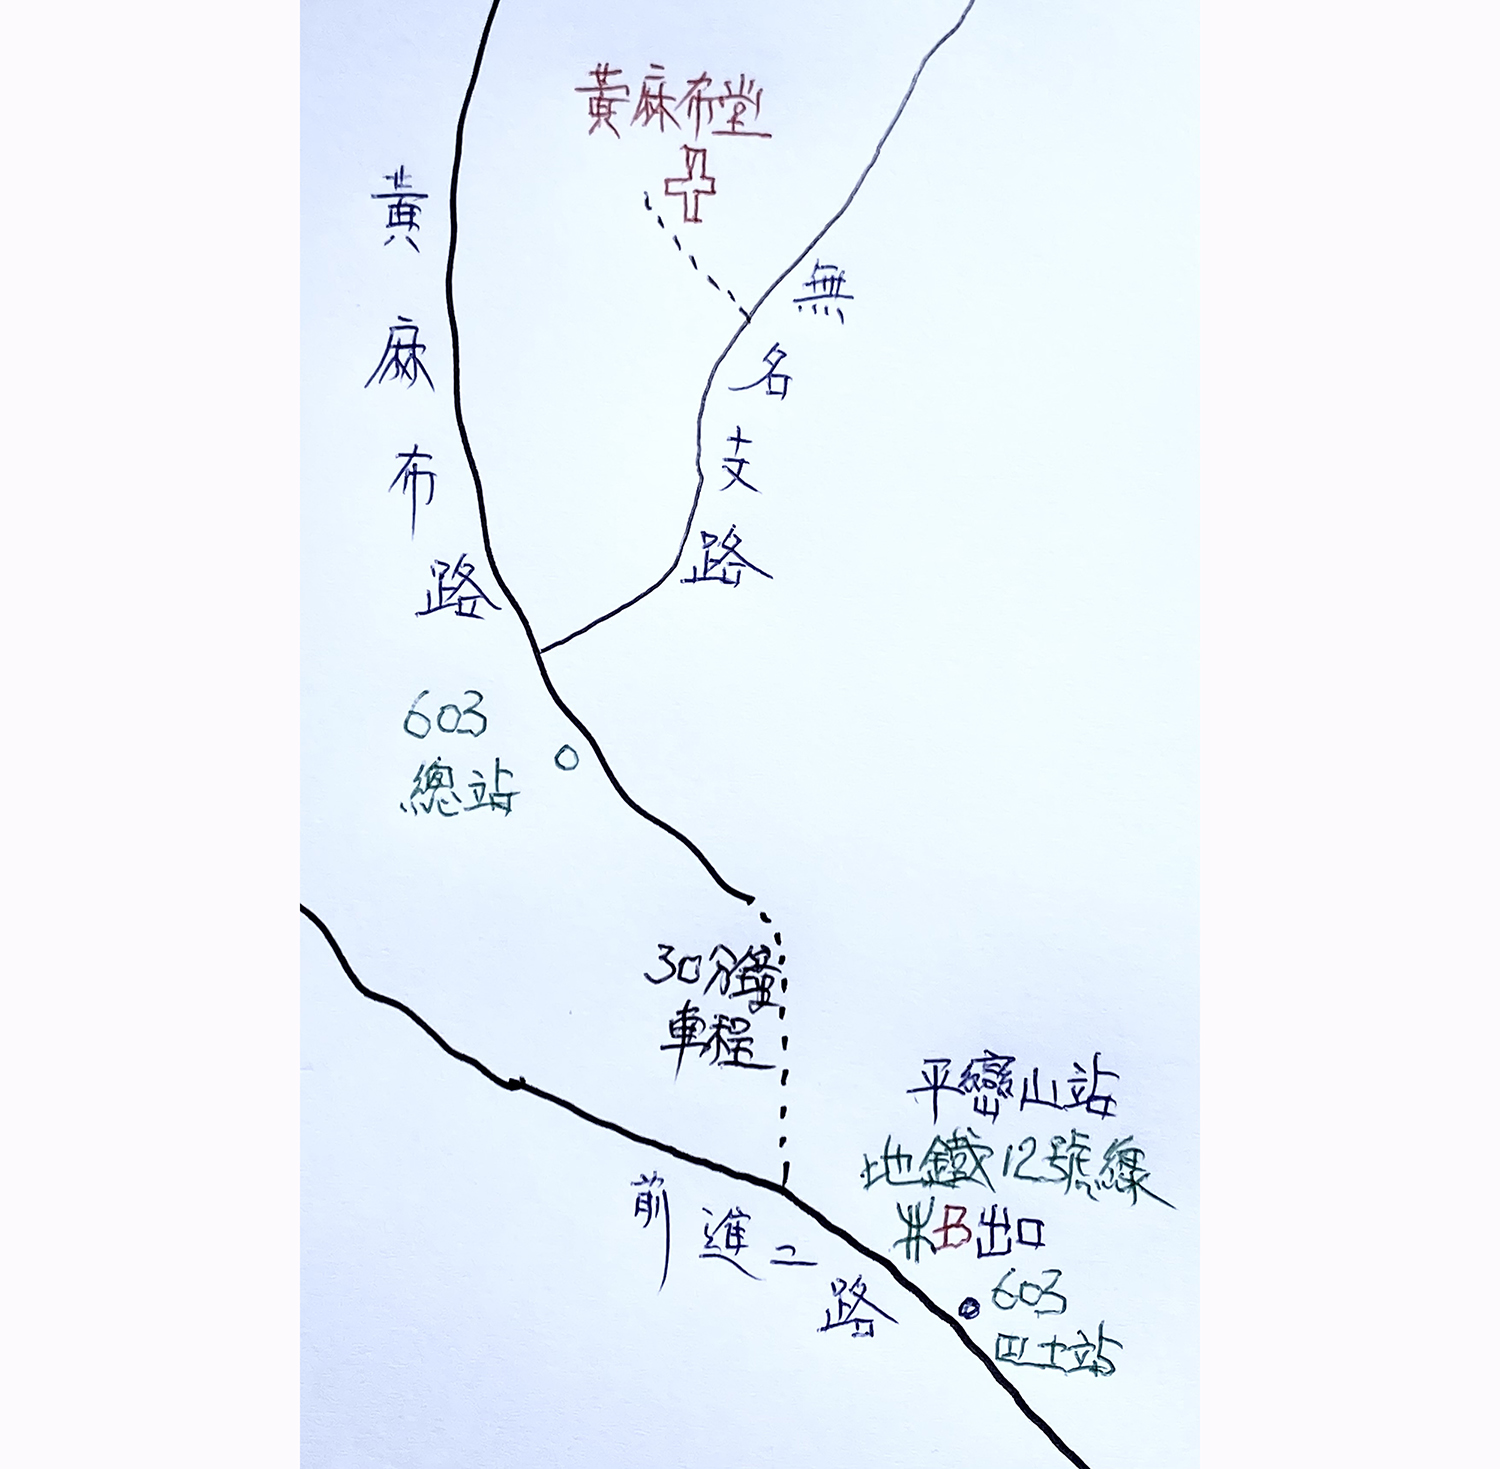 黃麻布堂
黃麻布路
無名支路
603
總站
30分鐘
車程
平巒山站
地鐵12號線
B出口
603
巴士站
前進二路